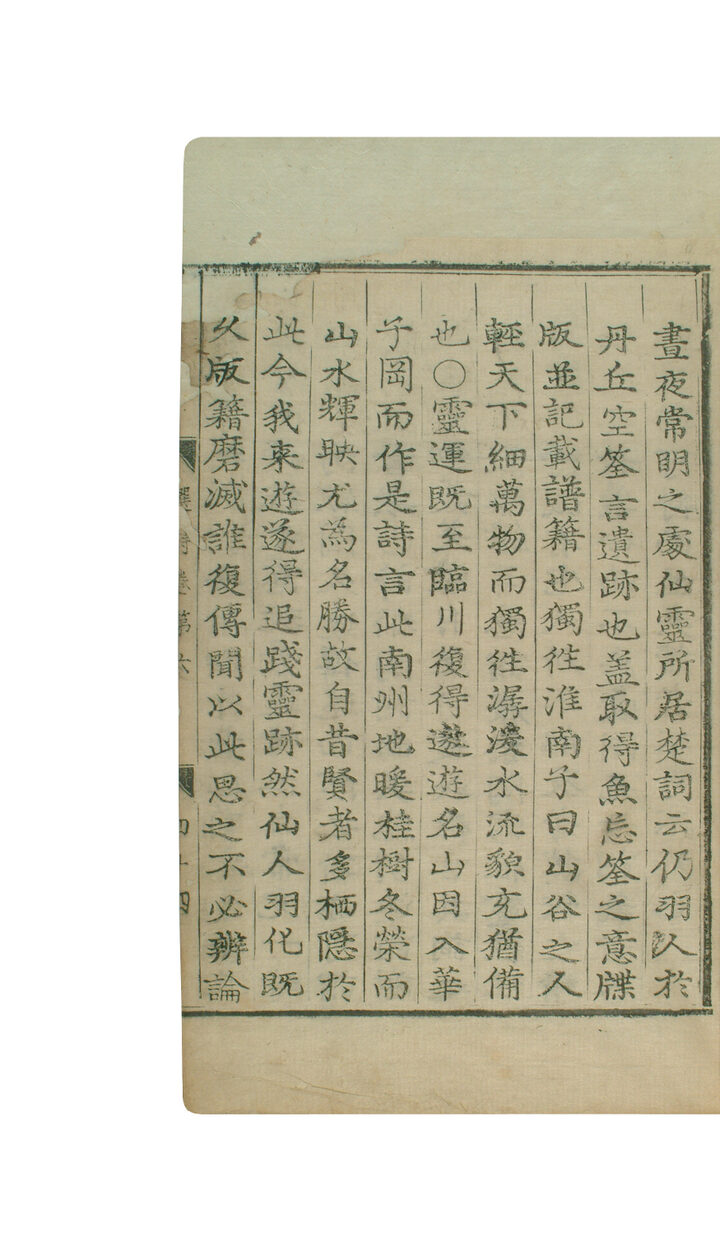 晝夜常明之處仙靈所居楚詞云仍羽人於
丹丘空筌言遺跡也盖取得魚忘筌之意牒
版並記載譜籍也獨徃淮南子曰山谷之人
輕天下細萬物而獨徃潺湲水流貌充猶備
也○靈運既至臨川復得遨遊名山因入華
子岡而作是詩言此南州地暖桂樹冬榮而
山水輝映尤為名勝故自昔賢者多栖隱於
此今我来遊遂得追踐靈跡然仙人羽化既
久版籍磨滅誰復傳聞以此思之不必辨論
選詩卷第六
四十四